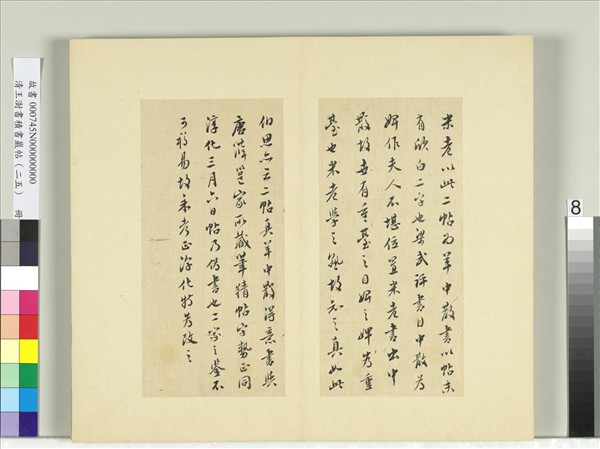 米老以此二帖為羊中散書以帖末
有欣白二字也梁武評書目中散為
婢作夫人不堪位置米老書出中
散故世有重臺之目婢之婢為重
臺也米老學之熟故知之真如此
伯思亦云二帖真羊中散得意書與
唐薛邕家所藏筆精帖字勢正同
淳化三月六日帖乃偽書也二家之鑒不
可移易故考正淳化特為改之
故書 000745N000000000
清王澍書積書巖帖（二五） 冊
8